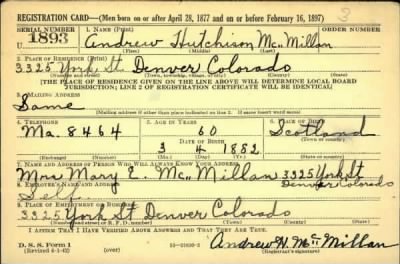 REGISTRATION CARD—(Men born on or after April 28, 1877 and on or before February 16, 1897)
SERIAL NUMBER 1. NAME (Print) ORDER NUMBER
U 1893 Andrew Hutchison Mc Millan
2. PLACE OF RESIDENCE (Print)
3325 York St Denver Colorado
(Number and street) (Town, township, village, or city) (County) (State)
[THE PLACE OF RESIDENCE GIVEN ON THE LINE ABOVE WILL DETERMINE LOCAL BOARD
JURISDICTION; LINE 2 OF REGISTRATION CERTIFICATE WILL BE IDENTICAL]
3. MAILING ADDRESS
Same
[Mailing address if other than place indicated on line 2. If same insert word same]
4. TELEPHONE 5. AGE IN YEARS 6. PLACE OF BIRTH
Ma. 8464 60 Scotland
DATE OF BIRTH
3 4 1882
(Exchange) (Number) (Mo.) (Day) (Yr.) (State or country)
7. NAME AND ADDRESS OF PERSON WHO WILL ALWAYS KNOW YOUR ADDRESS
Mrs Mary E. Mc Millan 3325 York St
Denver Colorado
8. EMPLOYER'S NAME AND ADDRESS
Self
9. PLACE OF EMPLOYMENT OR BUSINESS
3325 York St Denver Colorado
(Number and street or R. F. D. number) (Town) (County) (State)
I AFFIRM THAT I HAVE VERIFIED ABOVE ANSWERS AND THAT THEY ARE TRUE.
D. S. S. Form 1
(Revised 4-1-42) (over) Andrew H. Mc Millan
(Registrant's signature)